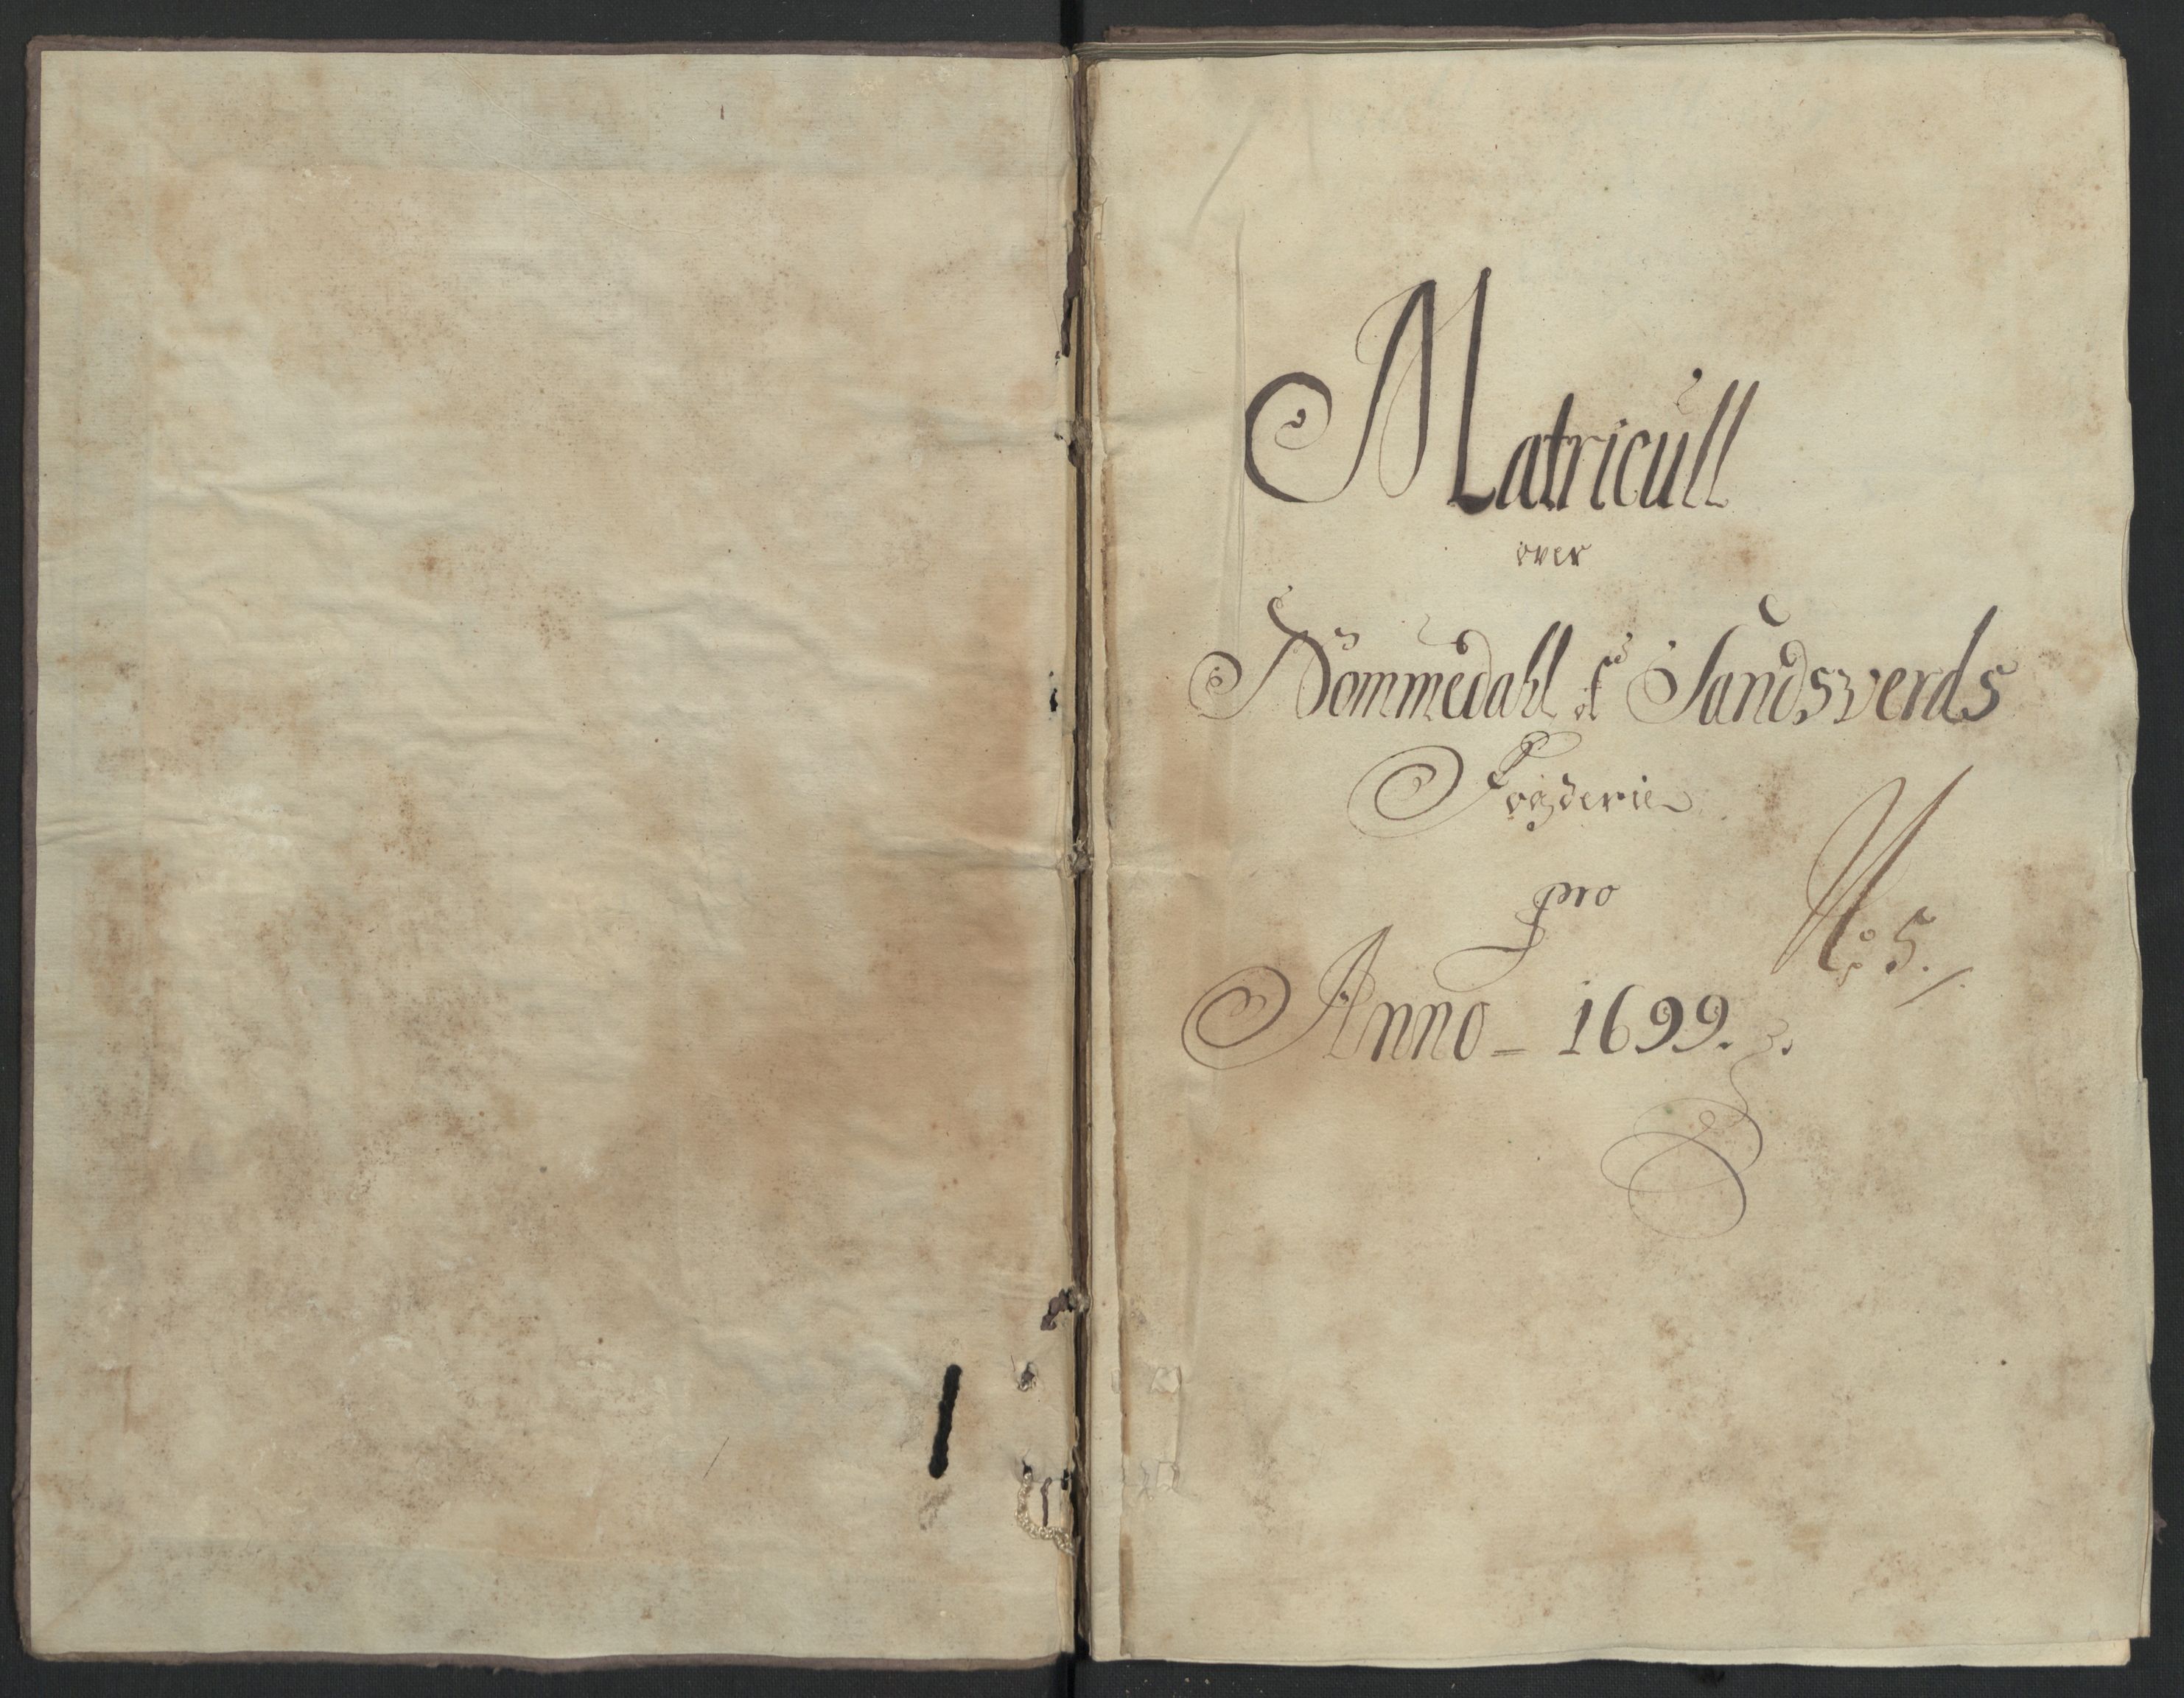 Matricull
over
Nommedahl & Sandsverds
Fogderie
pro
No 5.
Anno - 1699.